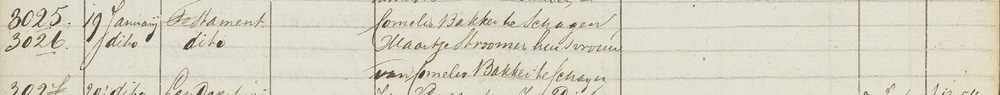 3025. 19 Januarij Testament Cornelis Bakker te Schagen
3026. dito dito Maartje Stroomer huisvrouw
van Cornelis Bakker te Schagen